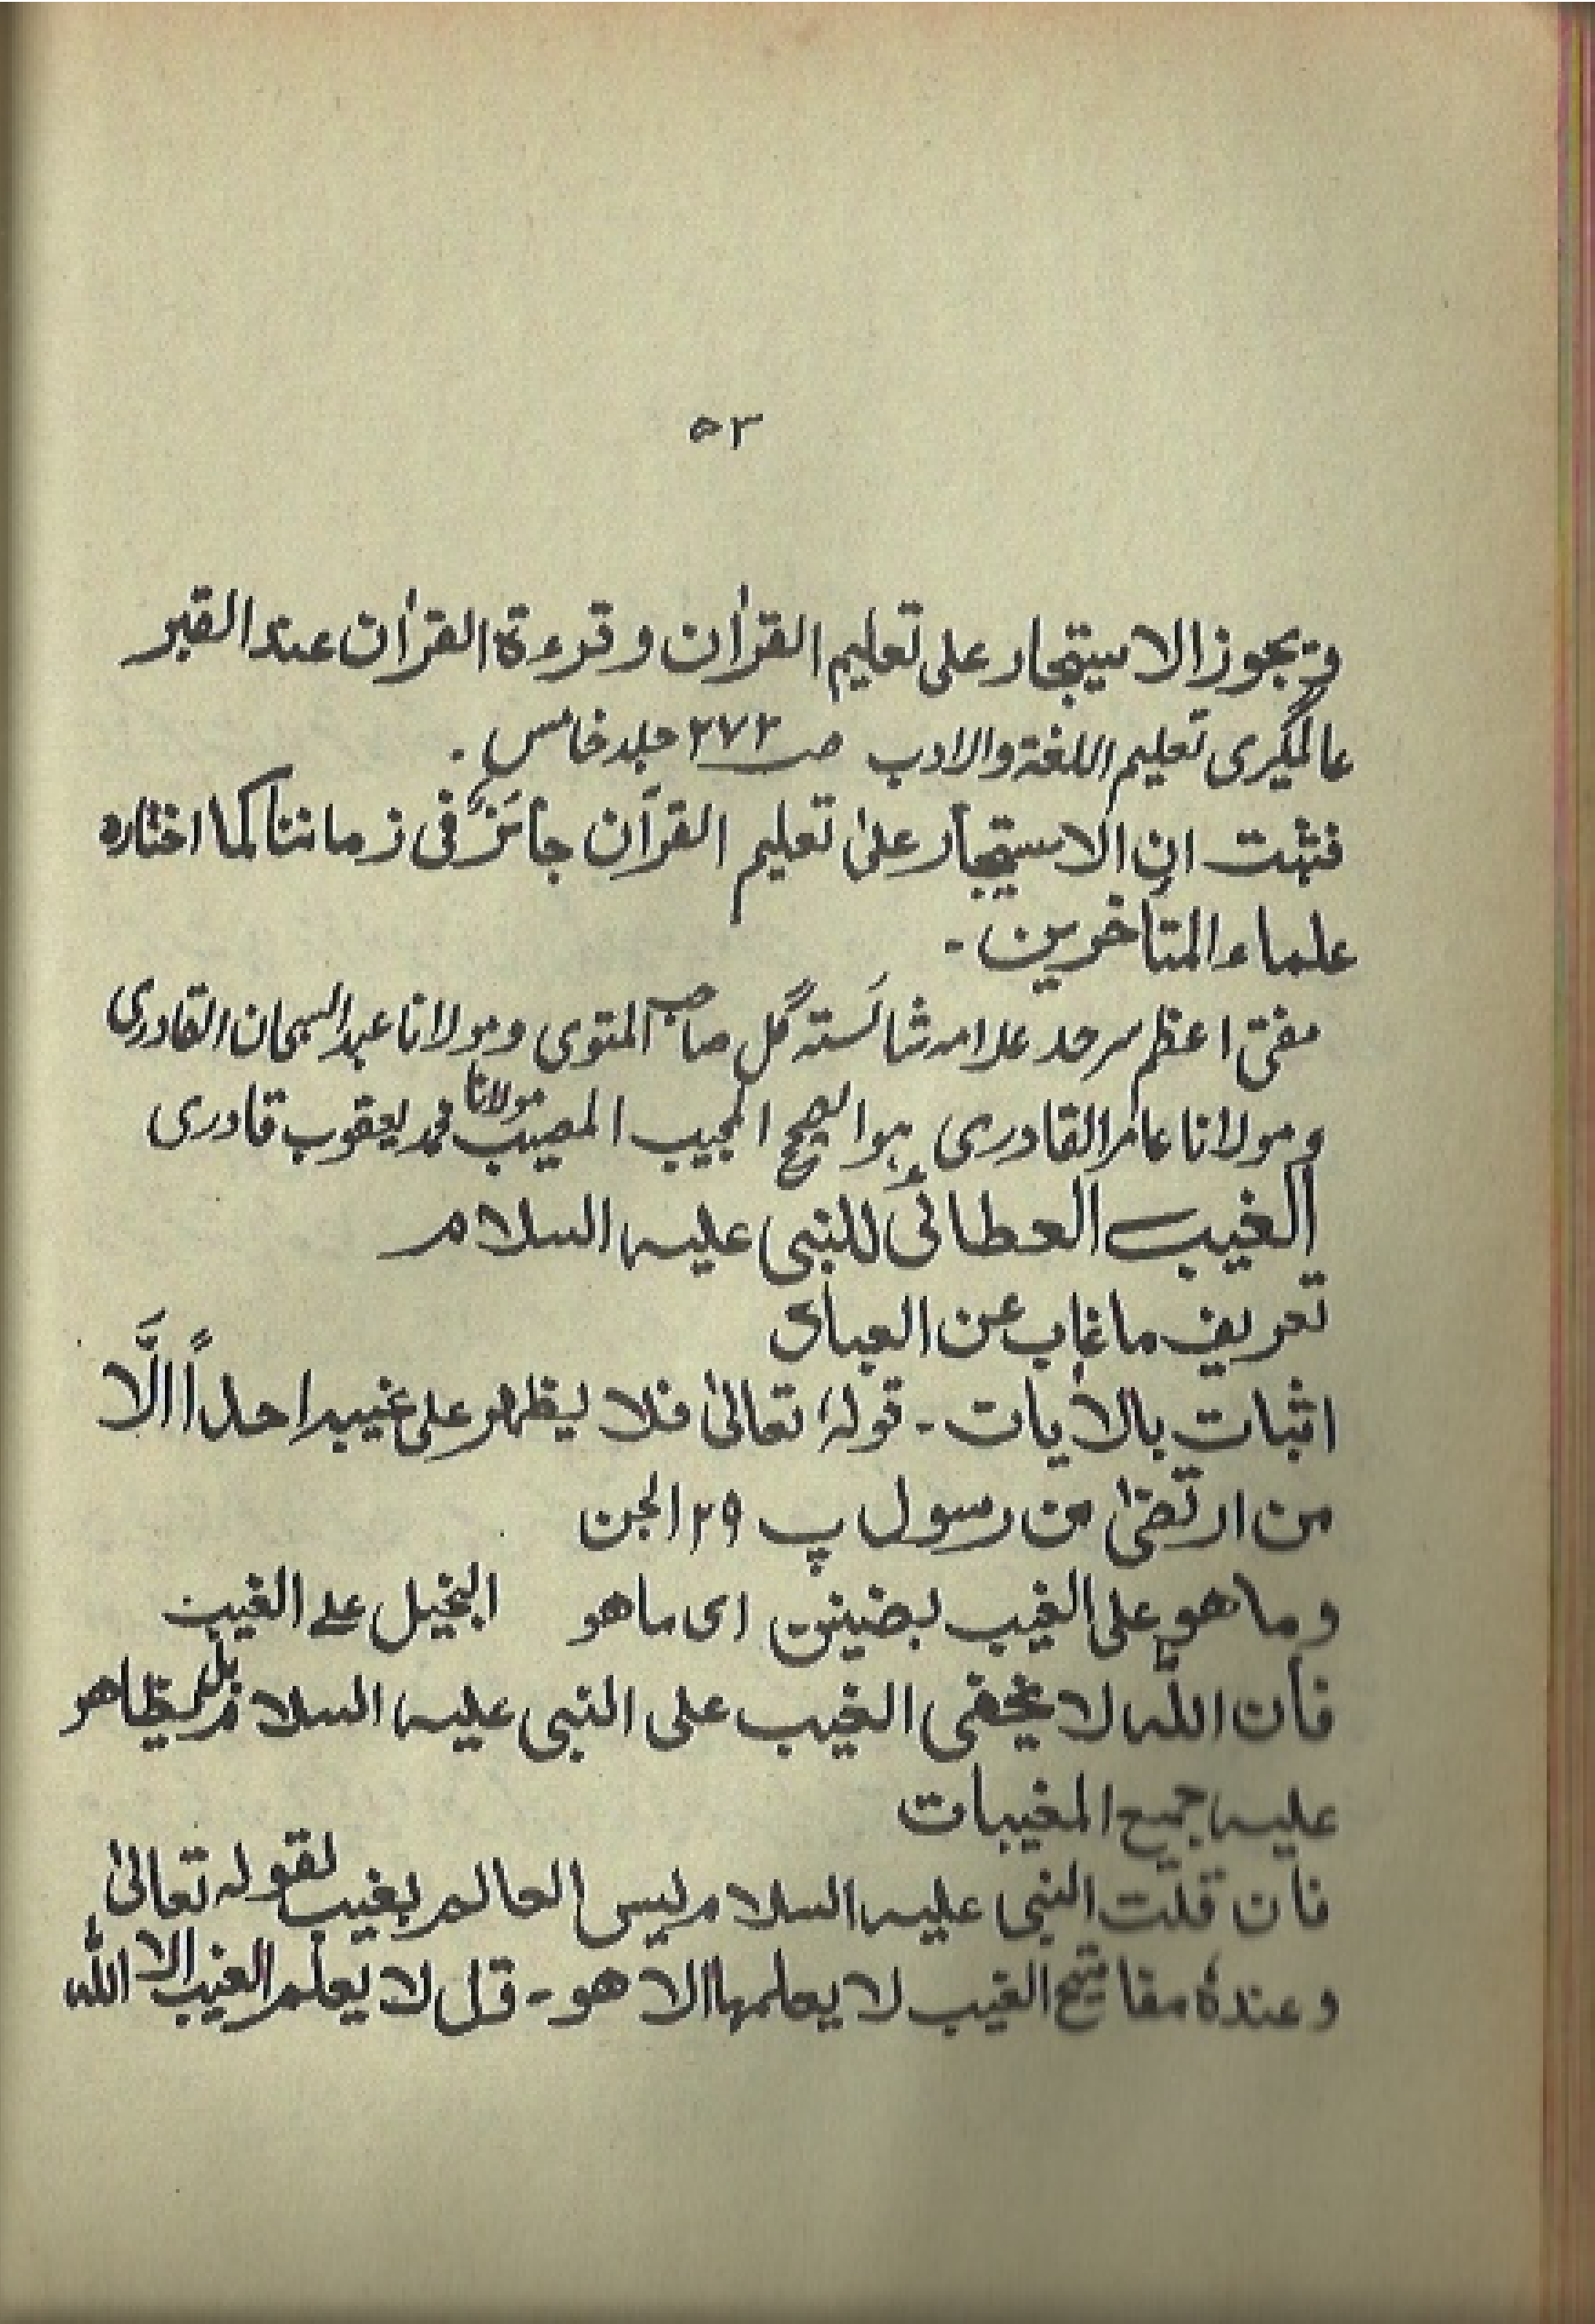 ۵۳
ویجوز الاستیجار علی تعلیم القراٰن وقرءة القراٰن عند القبر
عالمگیری تعلیم اللغة والادب صـ ۲۷۲ جلد خامس .
فثبت ان الاستیجأر علیٰ تعلیم القرآن جائزٌ فی زماننا کما اختاره
علماء المتأخرین -
مفتی اعظم سرحد علامه شائسته گل صاحب المتوی ومولانا عبد السبحان القادری
ومولانا عامر القادری ہوالصحیح المجیب المصیب مولانا محمد یعقوب قادری
الغیب العطائی للنبی علیہ السلام
تعریف ما غاب عن العباد
اثبات بالاٰیات - قولہٗ تعالیٰ فلا یظهر علی غیبہ احداً الَّا
من ارتضیٰ من رسول پ ۲۹ الجن
وما هو علی الغیب بضنین ای ما هو البخیل علی الغیب
فأن اللّٰہ لا یخفی الغیب علی النبی علیہ السلام بل یظاهر
علیہ جمیع المغیبات
فان قلت النبی علیہ السلام لیس العالم بغیب لقولہ تعالیٰ
وعندہٗ مفاتیح الغیب لا یعلمها الا هو - قل لا یعلم الغیب الا اللّٰہ